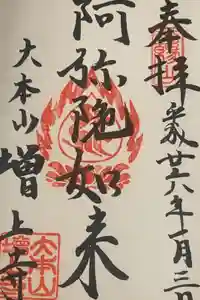 奉拝
平成廿六年一月三日
阿弥陀如来
大本山
増上寺
大本山